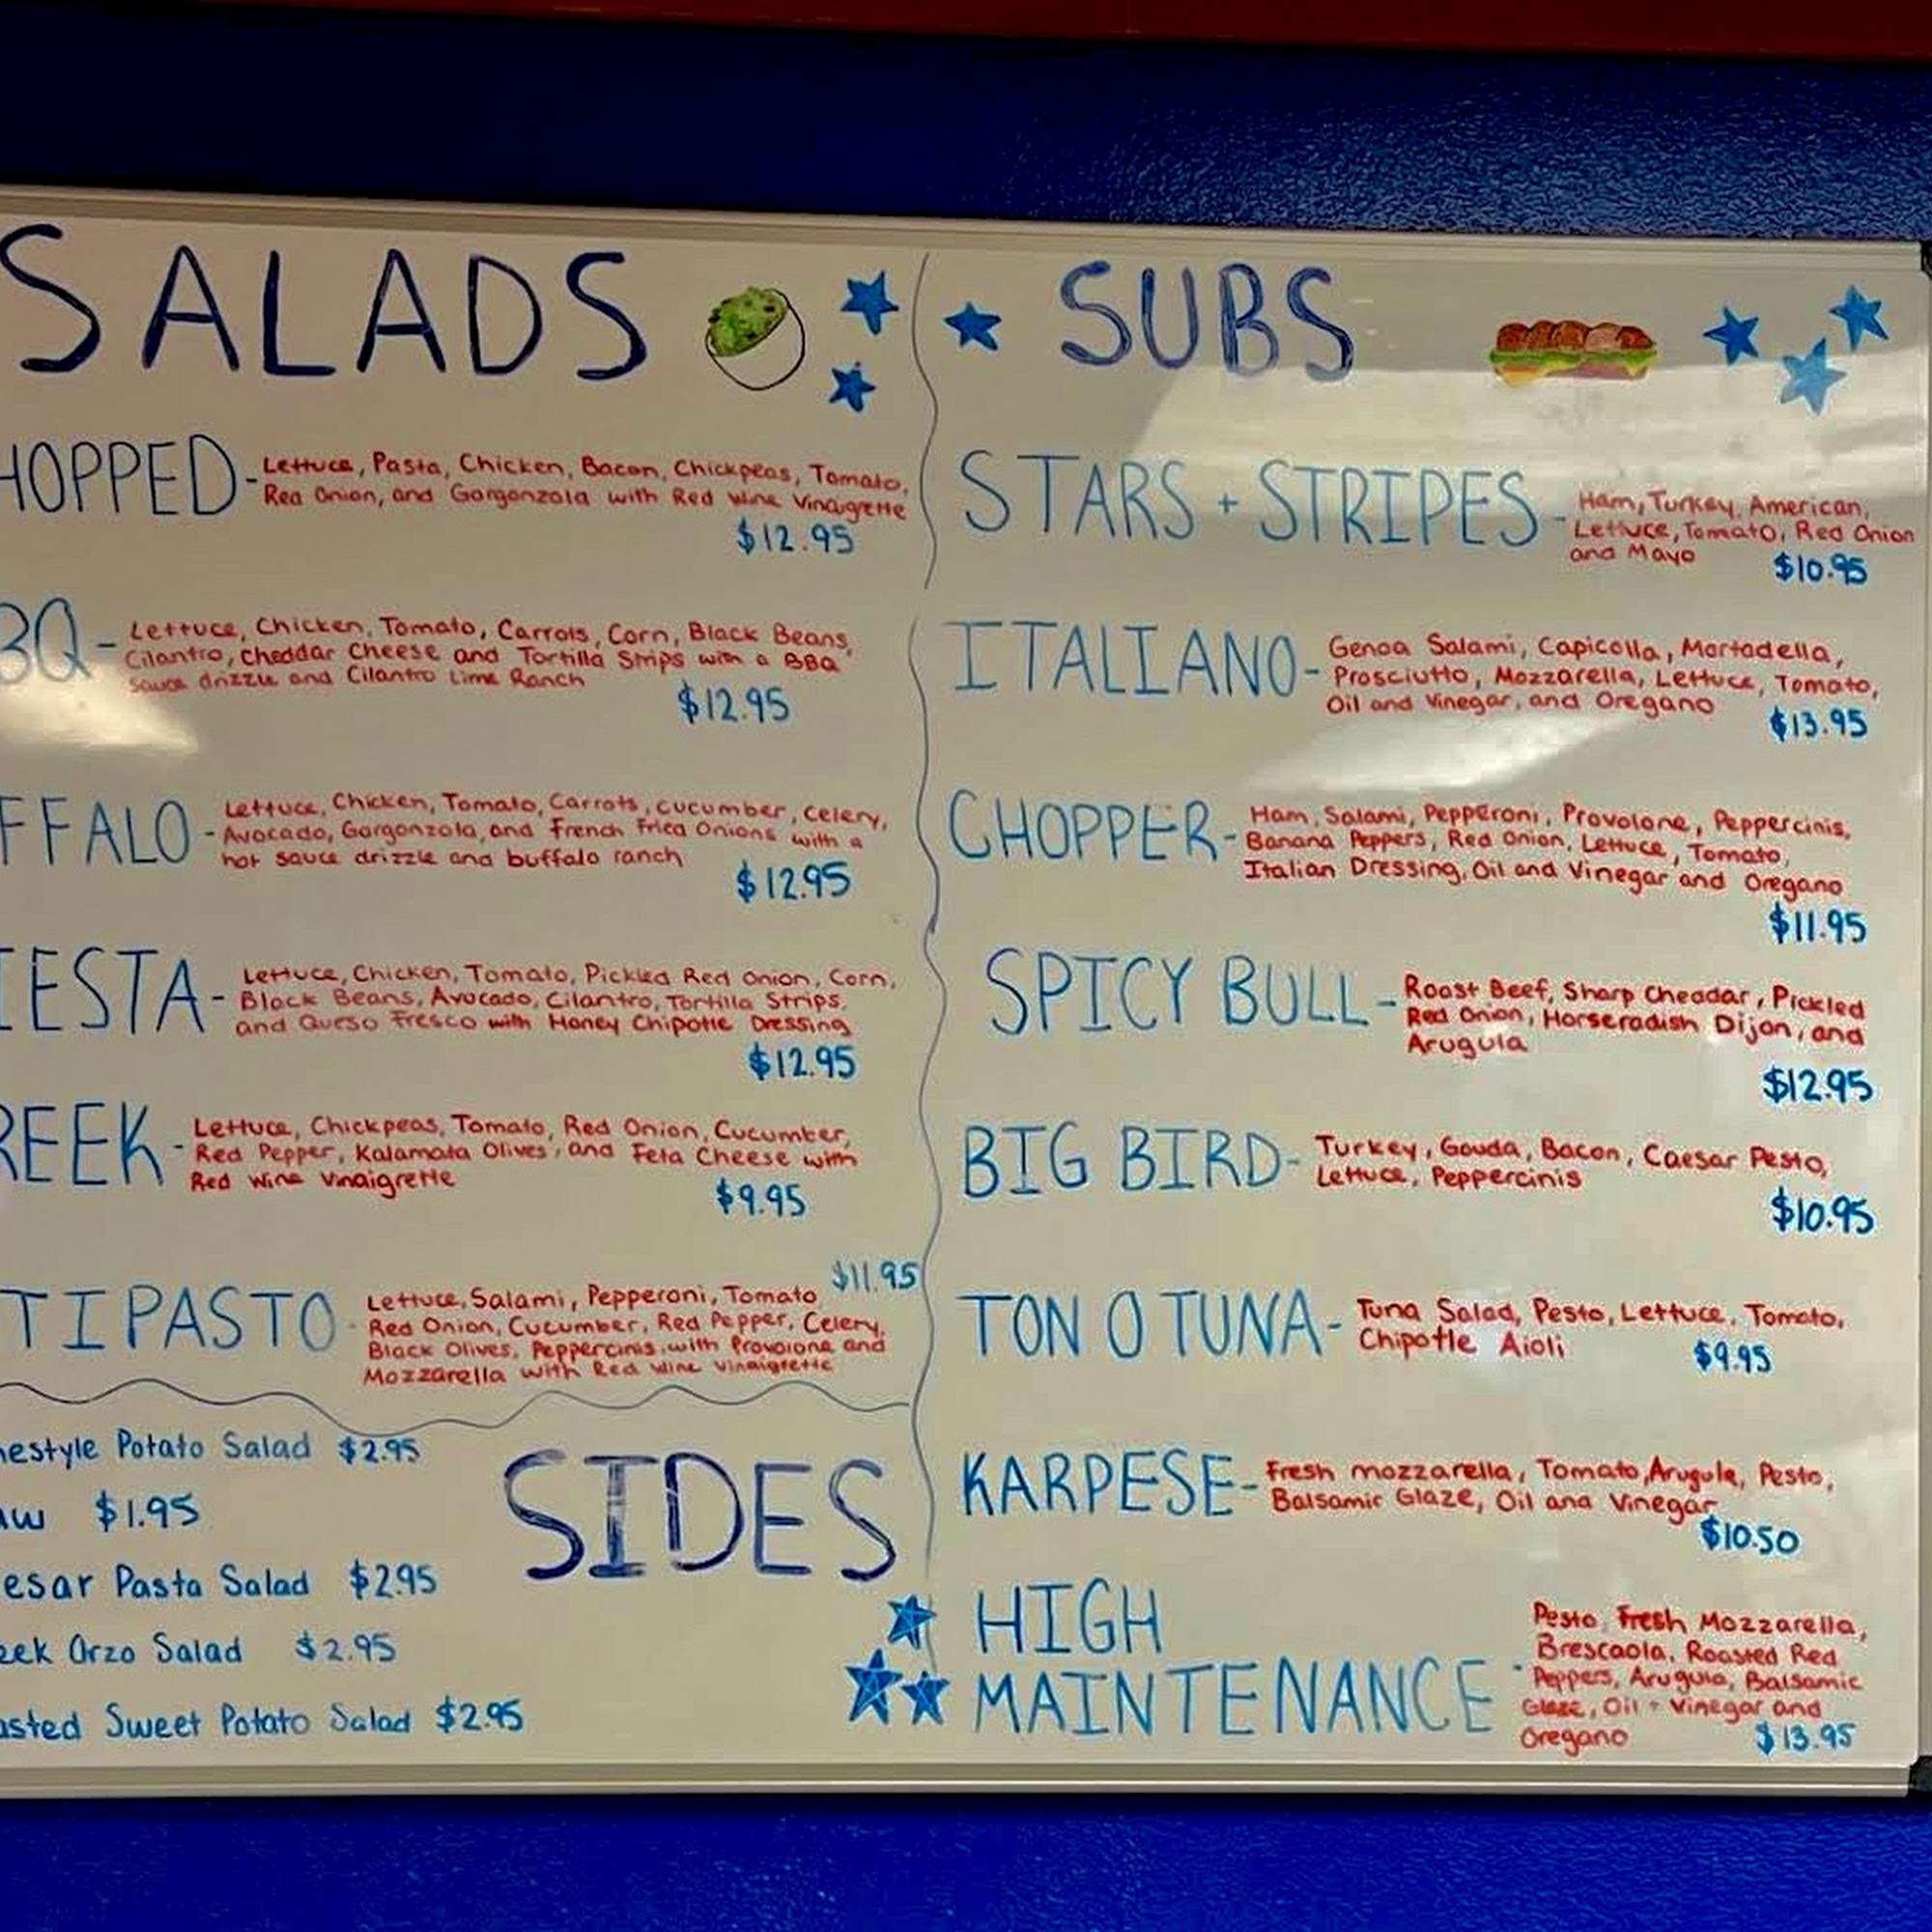 SALADS
HOPPED - Lettuce, Pasta, Chicken, Bacon, Chickpeas, Tomato,
Red Onion, and Gorgonzola with Red Wine Vinaigrette
$12.95
BQ - Lettuce, Chicken, Tomato, Carrots, Corn, Black Beans,
Cilantro, Cheddar Cheese and Tortilla Strips with a BBQ
sauce drizzle and Cilantro Lime Ranch
$12.95
FFALO - Lettuce, Chicken, Tomato, Carrots, cucumber, celery,
Avocado, Gorgonzola, and French Fried Onions with a
hot sauce drizzle and buffalo ranch
$12.95
IESTA - Lettuce, Chicken, Tomato, Pickled Red Onion, Corn,
Black Beans, Avocado, Cilantro, Tortilla Strips,
and Queso Fresco with Honey Chipotle Dressing
$12.95
REEK - Lettuce, Chickpeas, Tomato, Red Onion, Cucumber,
Red Pepper, Kalamata Olives, and Feta Cheese with
Red Wine Vinaigrette
$9.95
TIPASTO - Lettuce, Salami, Pepperoni, Tomato $11.95
Red Onion, Cucumber, Red Pepper, Celery,
Black Olives, Peppercinis with Provolone and
Mozzarella with Red Wine Vinaigrette
SIDES
nestyle Potato Salad $2.95
aw $1.95
esar Pasta Salad $2.95
eek Orzo Salad $2.95
asted Sweet Potato Salad $2.95
SUBS
STARS + STRIPES - Ham, Turkey, American,
Lettuce, Tomato, Red Onion
and Mayo $10.95
ITALIANO - Genoa Salami, Capicolla, Mortadella,
Prosciutto, Mozzarella, Lettuce, Tomato,
Oil and Vinegar, and Oregano
$13.95
CHOPPER - Ham, Salami, Pepperoni, Provolone, Peppercinis,
Banana Peppers, Red Onion, Lettuce, Tomato,
Italian Dressing, Oil and Vinegar and Oregano
$11.95
SPICY BULL - Roast Beef, Sharp Cheddar, Pickled
Red Onion, Horseradish Dijon, and
Arugula
$12.95
BIG BIRD - Turkey, Gouda, Bacon, Caesar Pesto,
Lettuce, Peppercinis
$10.95
TON O TUNA - Tuna Salad, Pesto, Lettuce, Tomato,
Chipotle Aioli $9.95
KARPESE - Fresh mozzarella, Tomato, Arugula, Pesto,
Balsamic Glaze, Oil and Vinegar
$10.50
HIGH
MAINTENANCE - Pesto, Fresh Mozzarella,
Brescaola, Roasted Red
Peppers, Arugula, Balsamic
Glaze, Oil + Vinegar and
Oregano $13.95